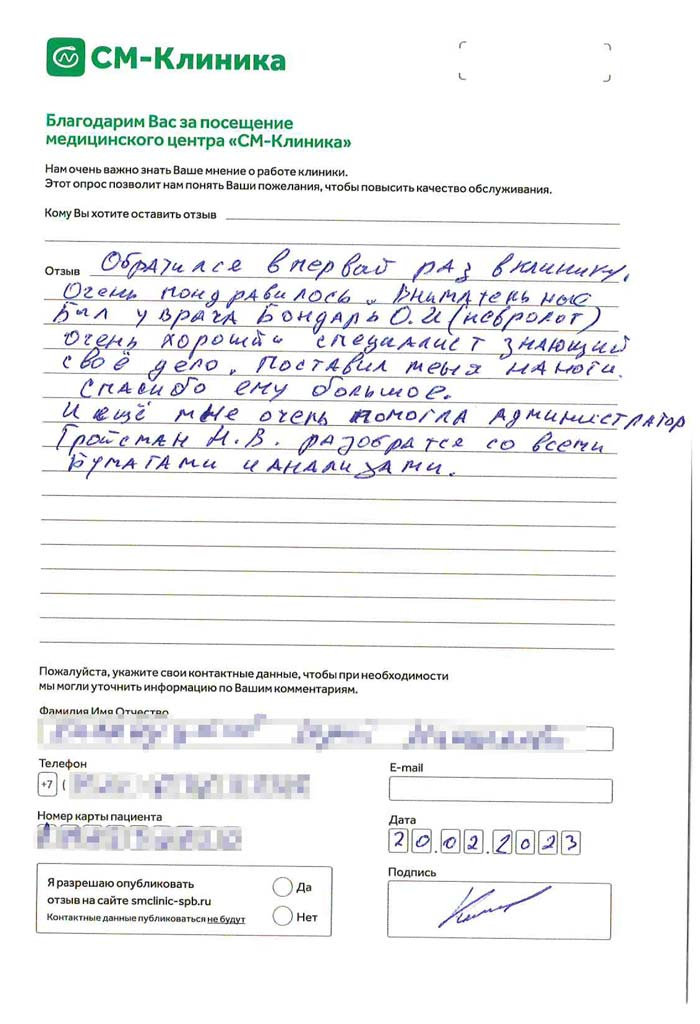 СМ-Клиника
Благодарим Вас за посещение
медицинского центра «СМ-Клиника»
Нам очень важно знать Ваше мнение о работе клиники.
Этот опрос позволит нам понять Ваши пожелания, чтобы повысить качество обслуживания.
Кому Вы хотите оставить отзыв
Отзыв Обратился в первай раз в клинику.
Очень пондравилось.
Был у врача Бондарь О.И (невролог)
очень хороший специалист знающий
своё дело. Поставил меня на ноги.
Спасибо ему большое.
И ещё мне очень помогла администратор
Тройсман Н.В. разобратся со всеми
бумагами и анализами.
Пожалуйста, укажите свои контактные данные, чтобы при необходимости
мы могли уточнить информацию по Вашим комментариям.
Фамилия Имя Отчество
Телефон
E-mail
+7 (
Номер карты пациента
Дата
20.02.2023
Подпись
Я разрешаю опубликовать
отзыв на сайте smclinic-spb.ru
Контактные данные публиковаться не будут
Да
Нет